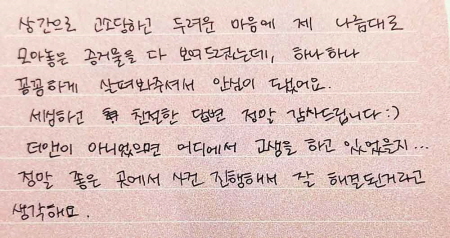 상간으로 고소당하고 두려운 마음에 제 나름대로
모아놓은 증거물을 다 보여드렸는데, 하나하나
꼼꼼하게 살펴봐주셔서 안심이 됐어요.
세심하고 친절한 답변 정말 감사드립니다:)
더앤이 아니었으면 어디에서 고생을 하고 있었을지...
정말 좋은 곳에서 사건 진행해서 잘 해결된거라고
생각해요.